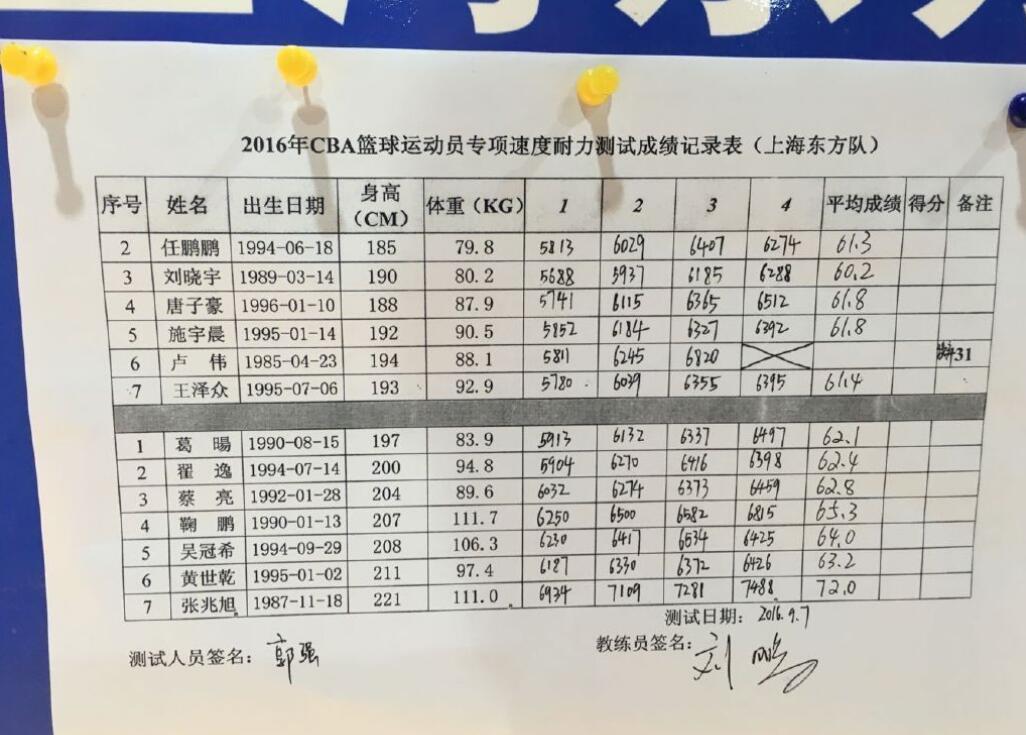 2016年CBA篮球运动员专项速度耐力测试成绩记录表（上海东方队）
序号 姓名 出生日期 身高（CM） 体重（KG） 1 2 3 4 平均成绩 得分 备注
2 任鹏鹏 1994-06-18 185 79.8 5813 6029 6407 6274 61.3
3 刘晓宇 1989-03-14 190 80.2 5688 5937 6185 6288 60.2
4 唐子豪 1996-01-10 188 87.9 5741 6115 6365 6512 61.8
5 施宇晨 1995-01-14 192 90.5 5852 6184 6327 6392 61.8
6 卢伟 1985-04-23 194 88.1 5811 6245 6820 31
7 王泽众 1995-07-06 193 92.9 5780 6039 6355 6395 61.4
1 葛暘 1990-08-15 197 83.9 5913 6132 6337 6497 62.1
2 翟逸 1994-07-14 200 94.8 5904 6270 6416 6398 62.4
3 蔡亮 1992-01-28 204 89.6 6032 6274 6373 6459 62.8
4 鞠鹏 1990-01-13 207 111.7 6250 6500 6582 6815 65.3
5 吴冠希 1994-09-29 208 106.3 6230 6417 6534 6425 64.0
6 黄世乾 1995-01-02 211 97.4 6187 6330 6372 6426 63.2
7 张兆旭 1987-11-18 221 111.0 6934 7109 7281 7488 72.0
测试日期：2016.9.7
测试人员签名：郭强 教练员签名：刘鹏